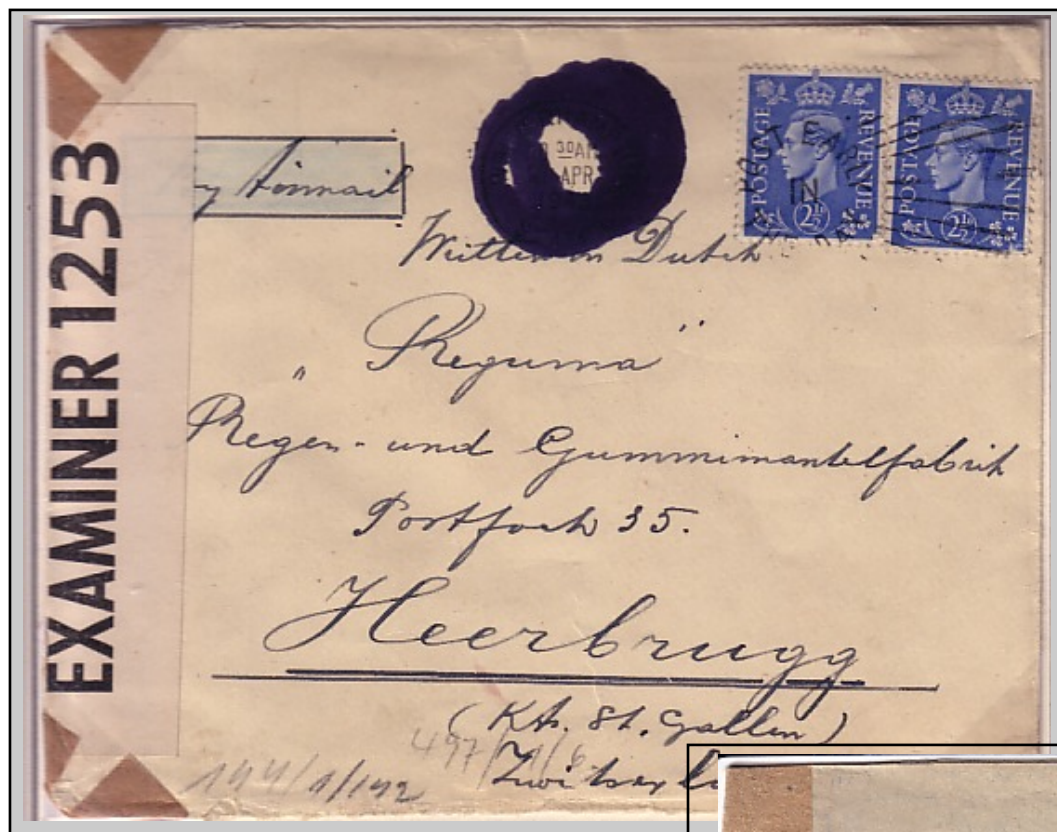 EXAMINER 1253
By Airmail
30 AM
APR
POSTAGE REVENUE 2½D
POSTAGE REVENUE 2½D
POST EARLY
IN
THE DAY
Written in Dutch
"Reguma"
Regen- und Gummimantelfabrik
Postfach 35.
Heerbrugg
(Kt. St. Gallen)